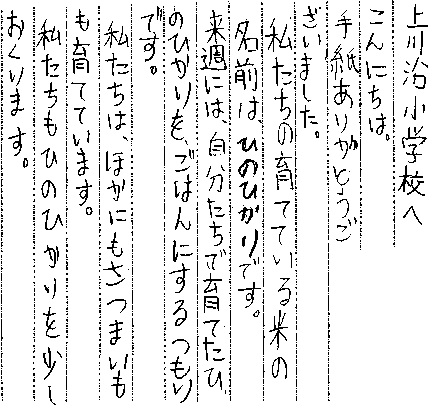 上川沿小学校へ
こんにちは。
手紙ありがとうご
ざいました。
私たちの育てている米の
名前は、ひのひかりです。
来週には、自分たちで育てたひ
のひかりを、ごはんにするつもり
です。
私たちは、ほかにもさつまいも
も育てています。
私たちもひのひかりを少し
おくります。